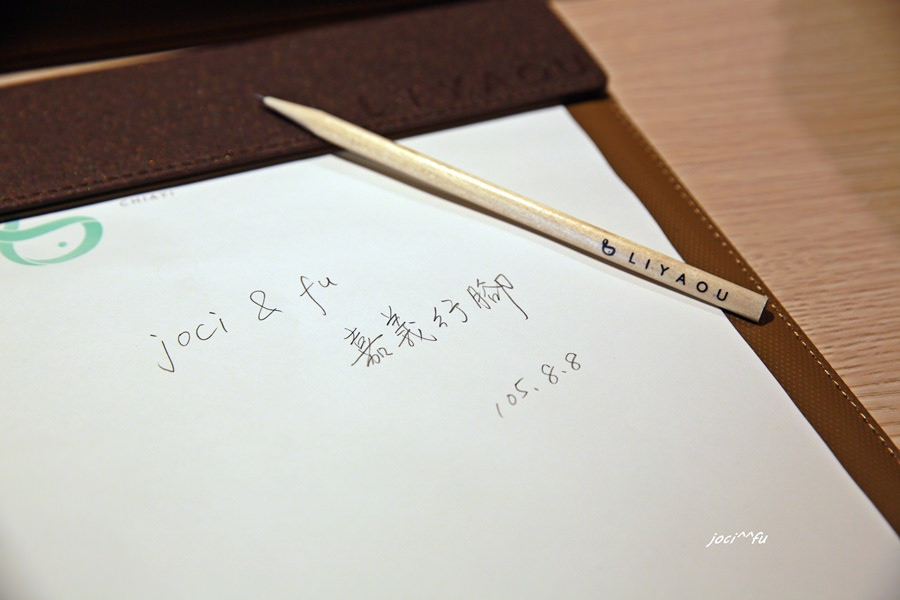 LIYAOU
CHIAYI
LIYAOU
joci & fu
嘉義行腳
105.8.8
joci^^fu